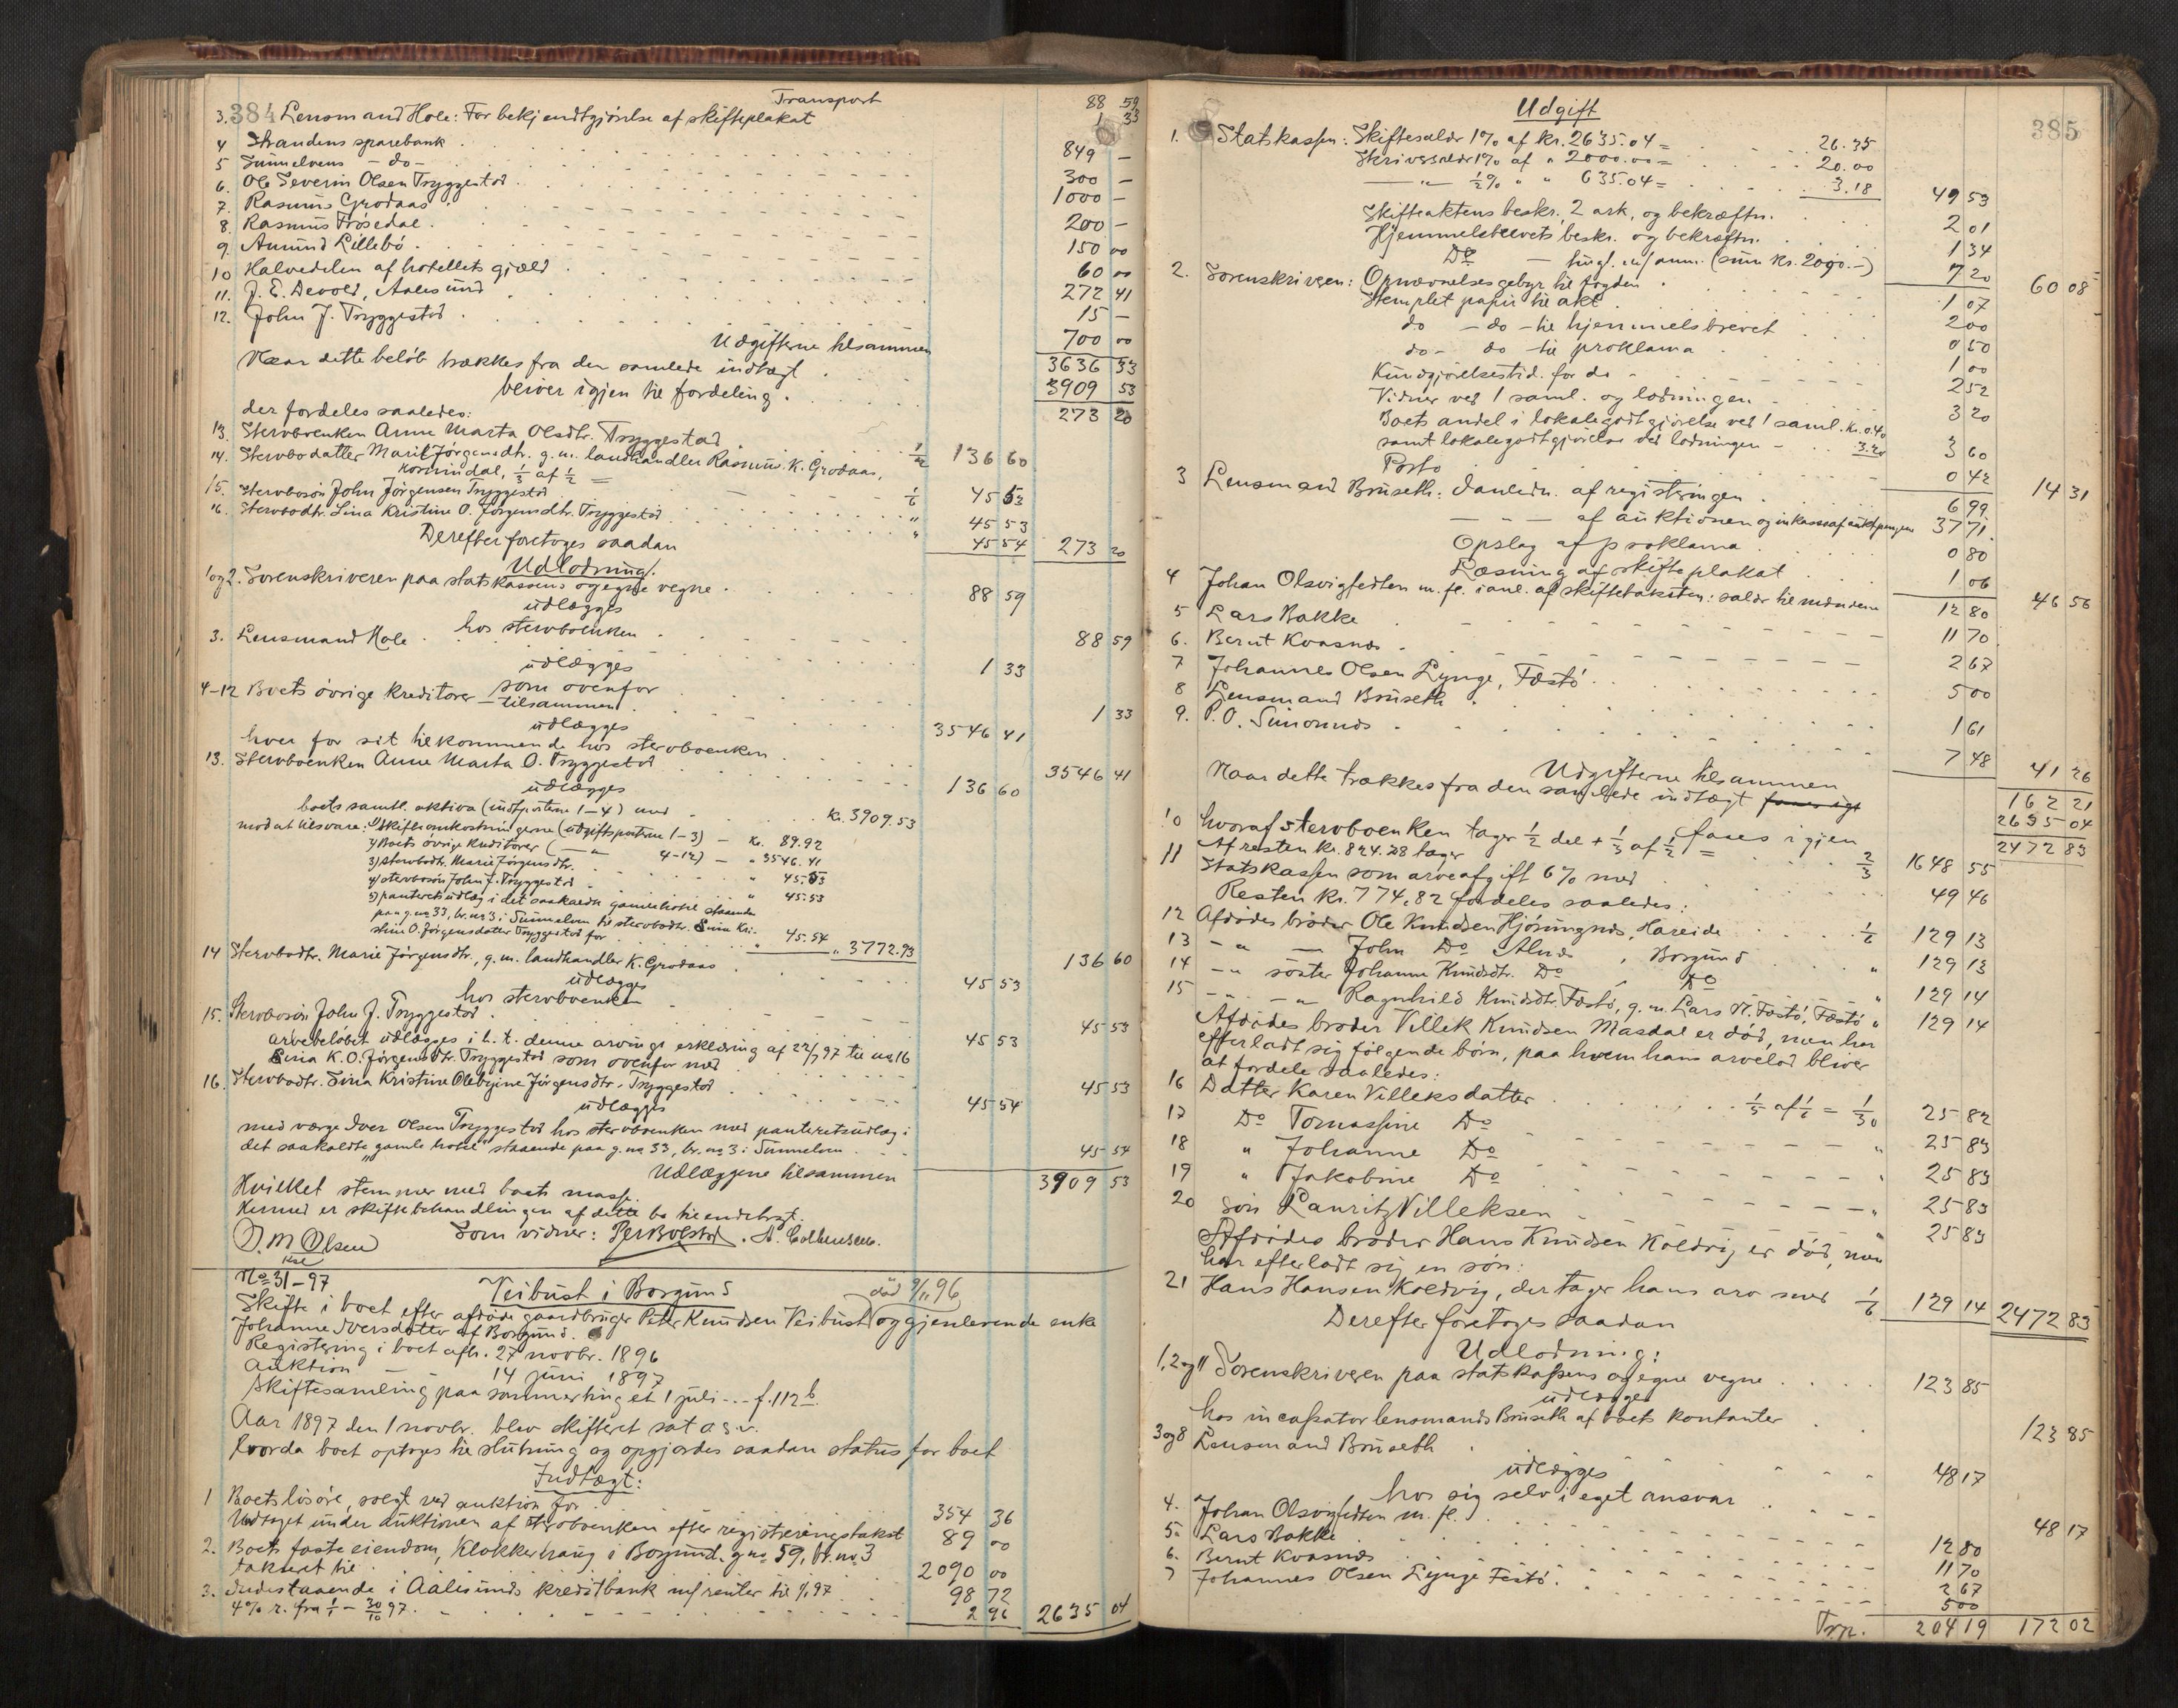 384
Transport 88 59
3. Lensmand Hole: For bekjendtgjörelse af skifteplakat 1 33
4 Strandens sparebank 849 —
5 Sunnelvens — do — 300 —
6. Ole Severin Olsen Tryggestad 1000 —
7. Rasmus Grodaas 200 —
8. Rasmus Frösedal 150 00
9. Amund Lillebö 60 00
10 Halvedelen af hotellets gjæld 272 41
11. J. E. Devold, Aalesund 15 —
12. John J. Tryggestad 700 00
Udgifterne tilsammen 3636 33
Naar dette belöb trækkes fra den samlede indtægt 3909 53
bliver igjen til fordeling 273 20
der fordeles saaledes:
13. Stervboenken Anne Marta Olsdtr. Tryggestad 1/2 136 60
14. Stervbodatter Marit Jörgensdtr. g. m. landhandler Rasmus K. Grodaas,
Hornindal, 1/3 af 1/2 = 1/6 45 53
15. Stervbosön John Jörgensen Tryggestad " 45 53
16. Stervbodtr. Lina Kristine O. Jörgensdtr. Tryggestad " 45 54 273 20
Derefter foretoges saadan
Udlodning:
1 og 2. Sorenskriveren paa statskassens og egne vegne 88 59
udlægges
hos stervboenken 88 59
3. Lensmand Hole 1 33
udlægges
som ovenfor 1 33
4-12 Boets övrige kreditorer — tilsammen 3546 41
udlægges
hver for sit tilkommende hos stervboenken 3546 41
13. Stervboenken Anne Marta O. Tryggestad 136 60
udlægges
boets samtl. aktiva (indtposterne 1-4) med kr. 3909.53
mod at tilsvare: 1) skifteomkostningerne (udgiftsposterne 1-3) — kr. 89.92
2) Boets övrige kreditorer ( — " — 4-12) — " 3546.41
3) stervbodtr. Marie Jörgensdtr. " 45.53
4) stervbosön John J. Tryggestad " 45.53
5) panteretsudlæg i det saakaldte gamle hotel staaende
paa g. no 33, br. no 3 i Sunnelven til stervbodtr. Lina Kri-
stine O. Jörgensdatter Tryggestad for " 45.54 " 3772.93
136 60
14 Stervbodtr. Marie Jörgensdtr., g. m. landhandler K. Grodaas 45 53
udlægges
hos stervboenken 45 53
15. Stervbosön John J. Tryggestad 45 53
arvebelöbet udlægges i h. t. denne arvings erklæring af 22/7 97 til no 16
Lina K. O. Jörgensdtr. Tryggestad som ovenfor med 45 53
16. Stervbodtr. Lina Kristine Olebyine Jörgensdtr. Tryggestad 45 54
udlægges
med værge Iver Olsen Tryggestad hos stervboenken med panteretsudlæg i
det saakaldte "gamle hotel" staaende paa g. no 33, br. no 3 i Sunnelven 45 54
Udlæggene tilsammen 3909 53
Hvilket stemmer med boets masse.
Hermed er skiftebehandlingen af dette bo tilendebragt.
O. M Olsen
kst
Som vidner: Per Bolstad. A. Colbensen.
No 31-97
Veibust i Borgund död 9/11 96
Skifte i boet efter afdöde gaardbruger Peter Knudsen Veibust og gjenlevende enke
Johanne Iversdatter af Borgund.
Registering i boet afh. 27 novbr. 1896
Auktion — 14 juni 1897
Skiftesamling paa sommerthinget 1 juli — f. 112 b.
Aar 1897 den 1 novbr. blev skifteret sat o. s. v.
hvorda boet optoges til slutning og opgjordes saadan status for boet
Indtægt:
1 Boets lösöre, solgt ved auktion for 354 36
Udtaget under auktionen af stervboenken efter registreringstakst 89 00
2. Boets faste eiendom, Klokkerhaug i Borgund g no 59, br. no 3
takseret til 2090 00
3. Indestaaende i Aalesunds kreditbank m/ renter til 1/1 97 98 72
4% r. fra 1/1 - 30/10 97 2 96 2635 04
385
Udgift
1. Statskassen: Skiftesalær 1% af kr. 2635.04 = 26.35
Skriversalær 1% af " 2000.00 = 20.00
— " — 1/2 % " " 635.04 = 3.18 49 53
Skifteaktens beskr. 2 ark, og bekræftn. 2 01
Hjemmelsbrevets beskr. og bekræftn. 1 34
Do — tingl. m/ anm. (sum kr. 2090.—) 7 20 60 08
2. Sorenskriveren: Opnævnelsesgebyr til fogden 1 07
Stemplet papir til akt 2 00
do — do — til hjemmelsbrevet 0 50
do — do til proklama 1 00
Kundgjörelsestid. for do 2 52
Vidner ved 1 saml. og lodningen 3 20
Boets andel i lokalegodtgjörelse ved 1 saml. kr. 0.40
samt lokalegodtgjörelse ved lodningen — 3.20 3 60
Porto 0 42 14 31
3 Lensmand Bruseth: Anledn. af registeringen 6 99
— " — af auktionen og inkasso af auktpengene 37 71
Opslag af proklama 0 80
Læsning af skifteplakat 1 06 46 56
4 Johan Olsvigfedten m. fl. i anl. af skiftetaksten: salær til mændene 12 80
5 Lars Bakke 11 70
6. Bernt Kvasnæs 2 67
7 Johannes Olsen Lynge, Festö 5 00
8 Lensmand Bruseth 1 61
9. P. O. Simonnæs 7 48 41 26
Udgifterne tilsammen 162 21
Naar dette trækkes fra den samlede indtægt 2635 04
faaes igjen 2472 83
10 hvoraf stervboenken tager 1/2 del + 1/3 af 1/2 = 2/3 1648 55
Af resten kr. 824.28 tager
11 Statskassen som arveafgift 6% med 49 46
Resten kr. 774,82 fordeles saaledes:
12 Afdödes broder Ole Knudsen Hjörungnæs, Hareide 1/6 129 13
13 — " — John Do Alnæs, Borgund " 129 13
14 — " söster Johanne Knudsdtr. Do Do " 129 14
15 — " — " Ragnhild Knudsdtr. Festö, g. m. Lars N. Festö, Festö " 129 14
Afdödes broder Villek Knudsen Masdal er död, men har
efterladt sig fölgende börn, paa hvem hans arvelod bliver
at fordele saaledes:
16 Datter Karen Villeksdatter 1/5 af 1/6 = 1/30 25 82
17 Do Tomassine Do " 25 83
18 " Johanne Do " 25 83
19 " Jakobine Do " 25 83
20 Sön Lauritz Villeksen " 25 83
Afdödes broder Hans Knudsen Koldvig er död, men
har efterladt sig en sön:
21 Hans Hansen Koldvig, der tager hans arv med 1/6 129 14 2472 83
Derefter foretoges saadan
Udlodning:
1, 2 og 11 Sorenskriveren paa statskassens og egne vegne 123 85
udlægges
hos incassator lensmand Bruseth af boets kontanter 123 85
3 og 8 Lensmand Bruseth 48 17
udlægges
hos sig selv i eget ansvar 48 17
4. Johan Olsvigfedten m. fl. 12 80
5. Lars Bakke 11 70
6. Bernt Kvasnæs 2 67
7 Johannes Olsen Lynge Festö 5 00
Trp. 204 19 172 02